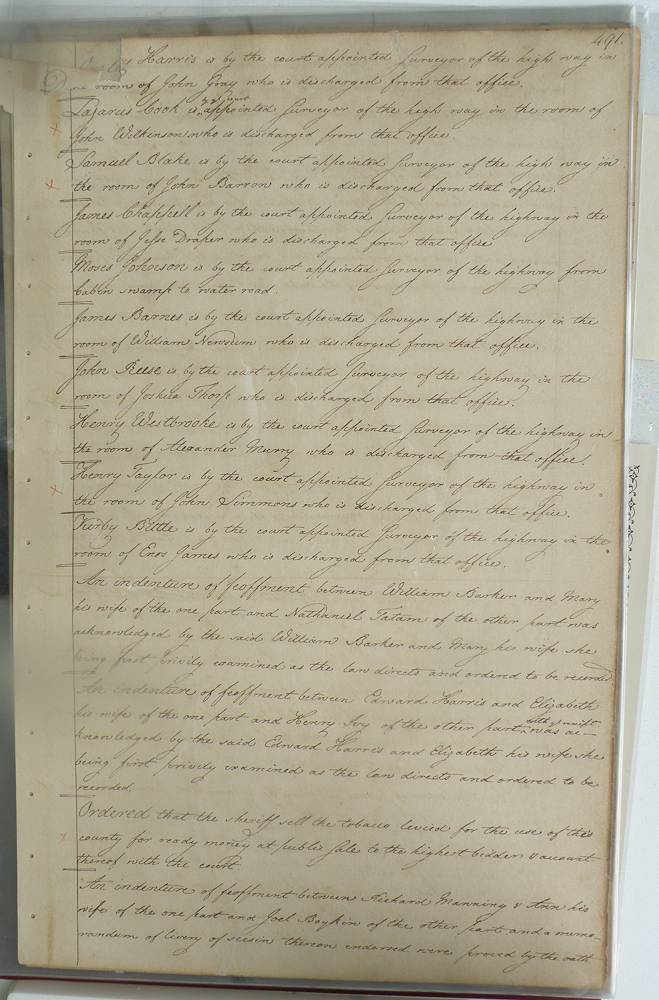 491.
Harris is by the court appointed Surveyor of the high way in
room of John Gray who is discharged from that office.
Lazarus Cook is appointed Surveyor of the high way in the room of
John Wilkinson who is discharged from that office
Samuel Blake is by the court appointed Surveyor of the high way in
the room of John Barrow who is discharged from that office.
James Chappell is by the court appointed Surveyor of the highway in the
room of Jesse Draper who is discharged from that office
Moses Johnson is by the court appointed Surveyor of the highway from
Cabbin swamp to water road.
James Barnes is by the court appointed Surveyor of the highway in the
room of William Newsum who is discharged from that office.
John Reese is by the court appointed Surveyor of the highway in the
room of Joshua Thorp who is discharged from that office.
Henry Westbrooke is by the court appointed Surveyor of the highway in
the room of Alexander Murry who is discharged from that office.
Henry Taylor is by the court appointed Surveyor of the highway in
the room of John Simmons who is discharged from that office.
Kirby Bittle is by the court appointed Surveyor of the highway in the
room of Enos James who is discharged from that office.
An indenture of feoffment between William Barker and Mary
his wife of the one part and Nathaniel Tatam of the other part was
acknowledged by the said William Barker and Mary his wife she
being first privily examined as the law directs and ordered to be recorded
An indenture of feoffment between Edward Harris and Elizabeth
his wife of the one part and Henry Ivy of the other part was ac-
knowledged by the said Edward Harris and Elizabeth his wife she
being first privily examined as the law directs and ordered to be
recorded.
Ordered that the sheriff sell the tobacco levied for the use of this
county for ready money at public sale to the highest bidders & account
thereof with the court.
An indenture of feoffment between Richard Manning & Ann his
wife of the one part and Joel Boykin of the other part and a memo-
randum of livery of seisin thereon endorsed were proved by the oath